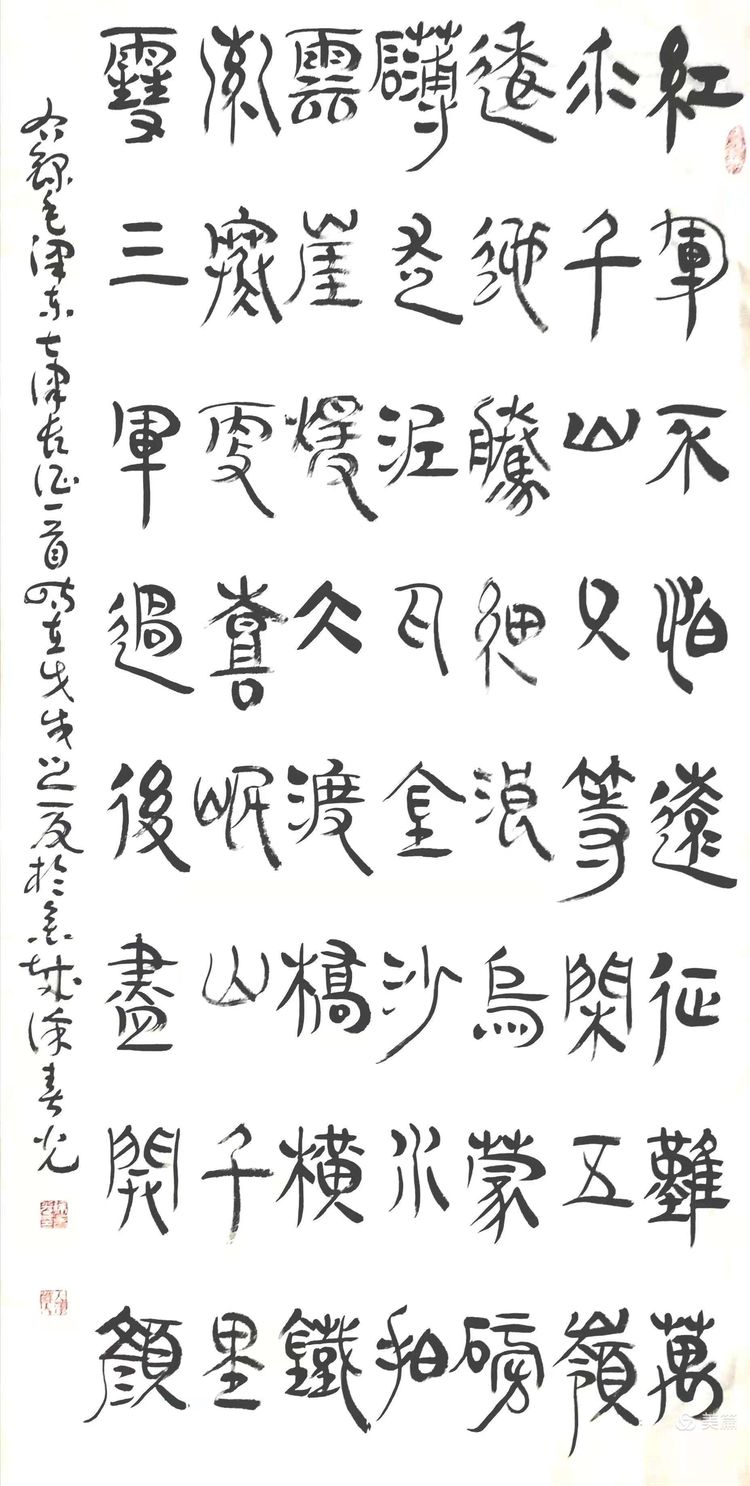 紅軍不怕遠征難萬
水千山只等閑五嶺
逶迤騰細浪烏蒙磅
礴走泥丸金沙水拍
雲崖暖大渡橋橫鐵
索寒更喜岷山千里
雪三軍過後盡開顏
右錄毛澤東七律長征一首時在戊戌之夏於城徐春光
美篇